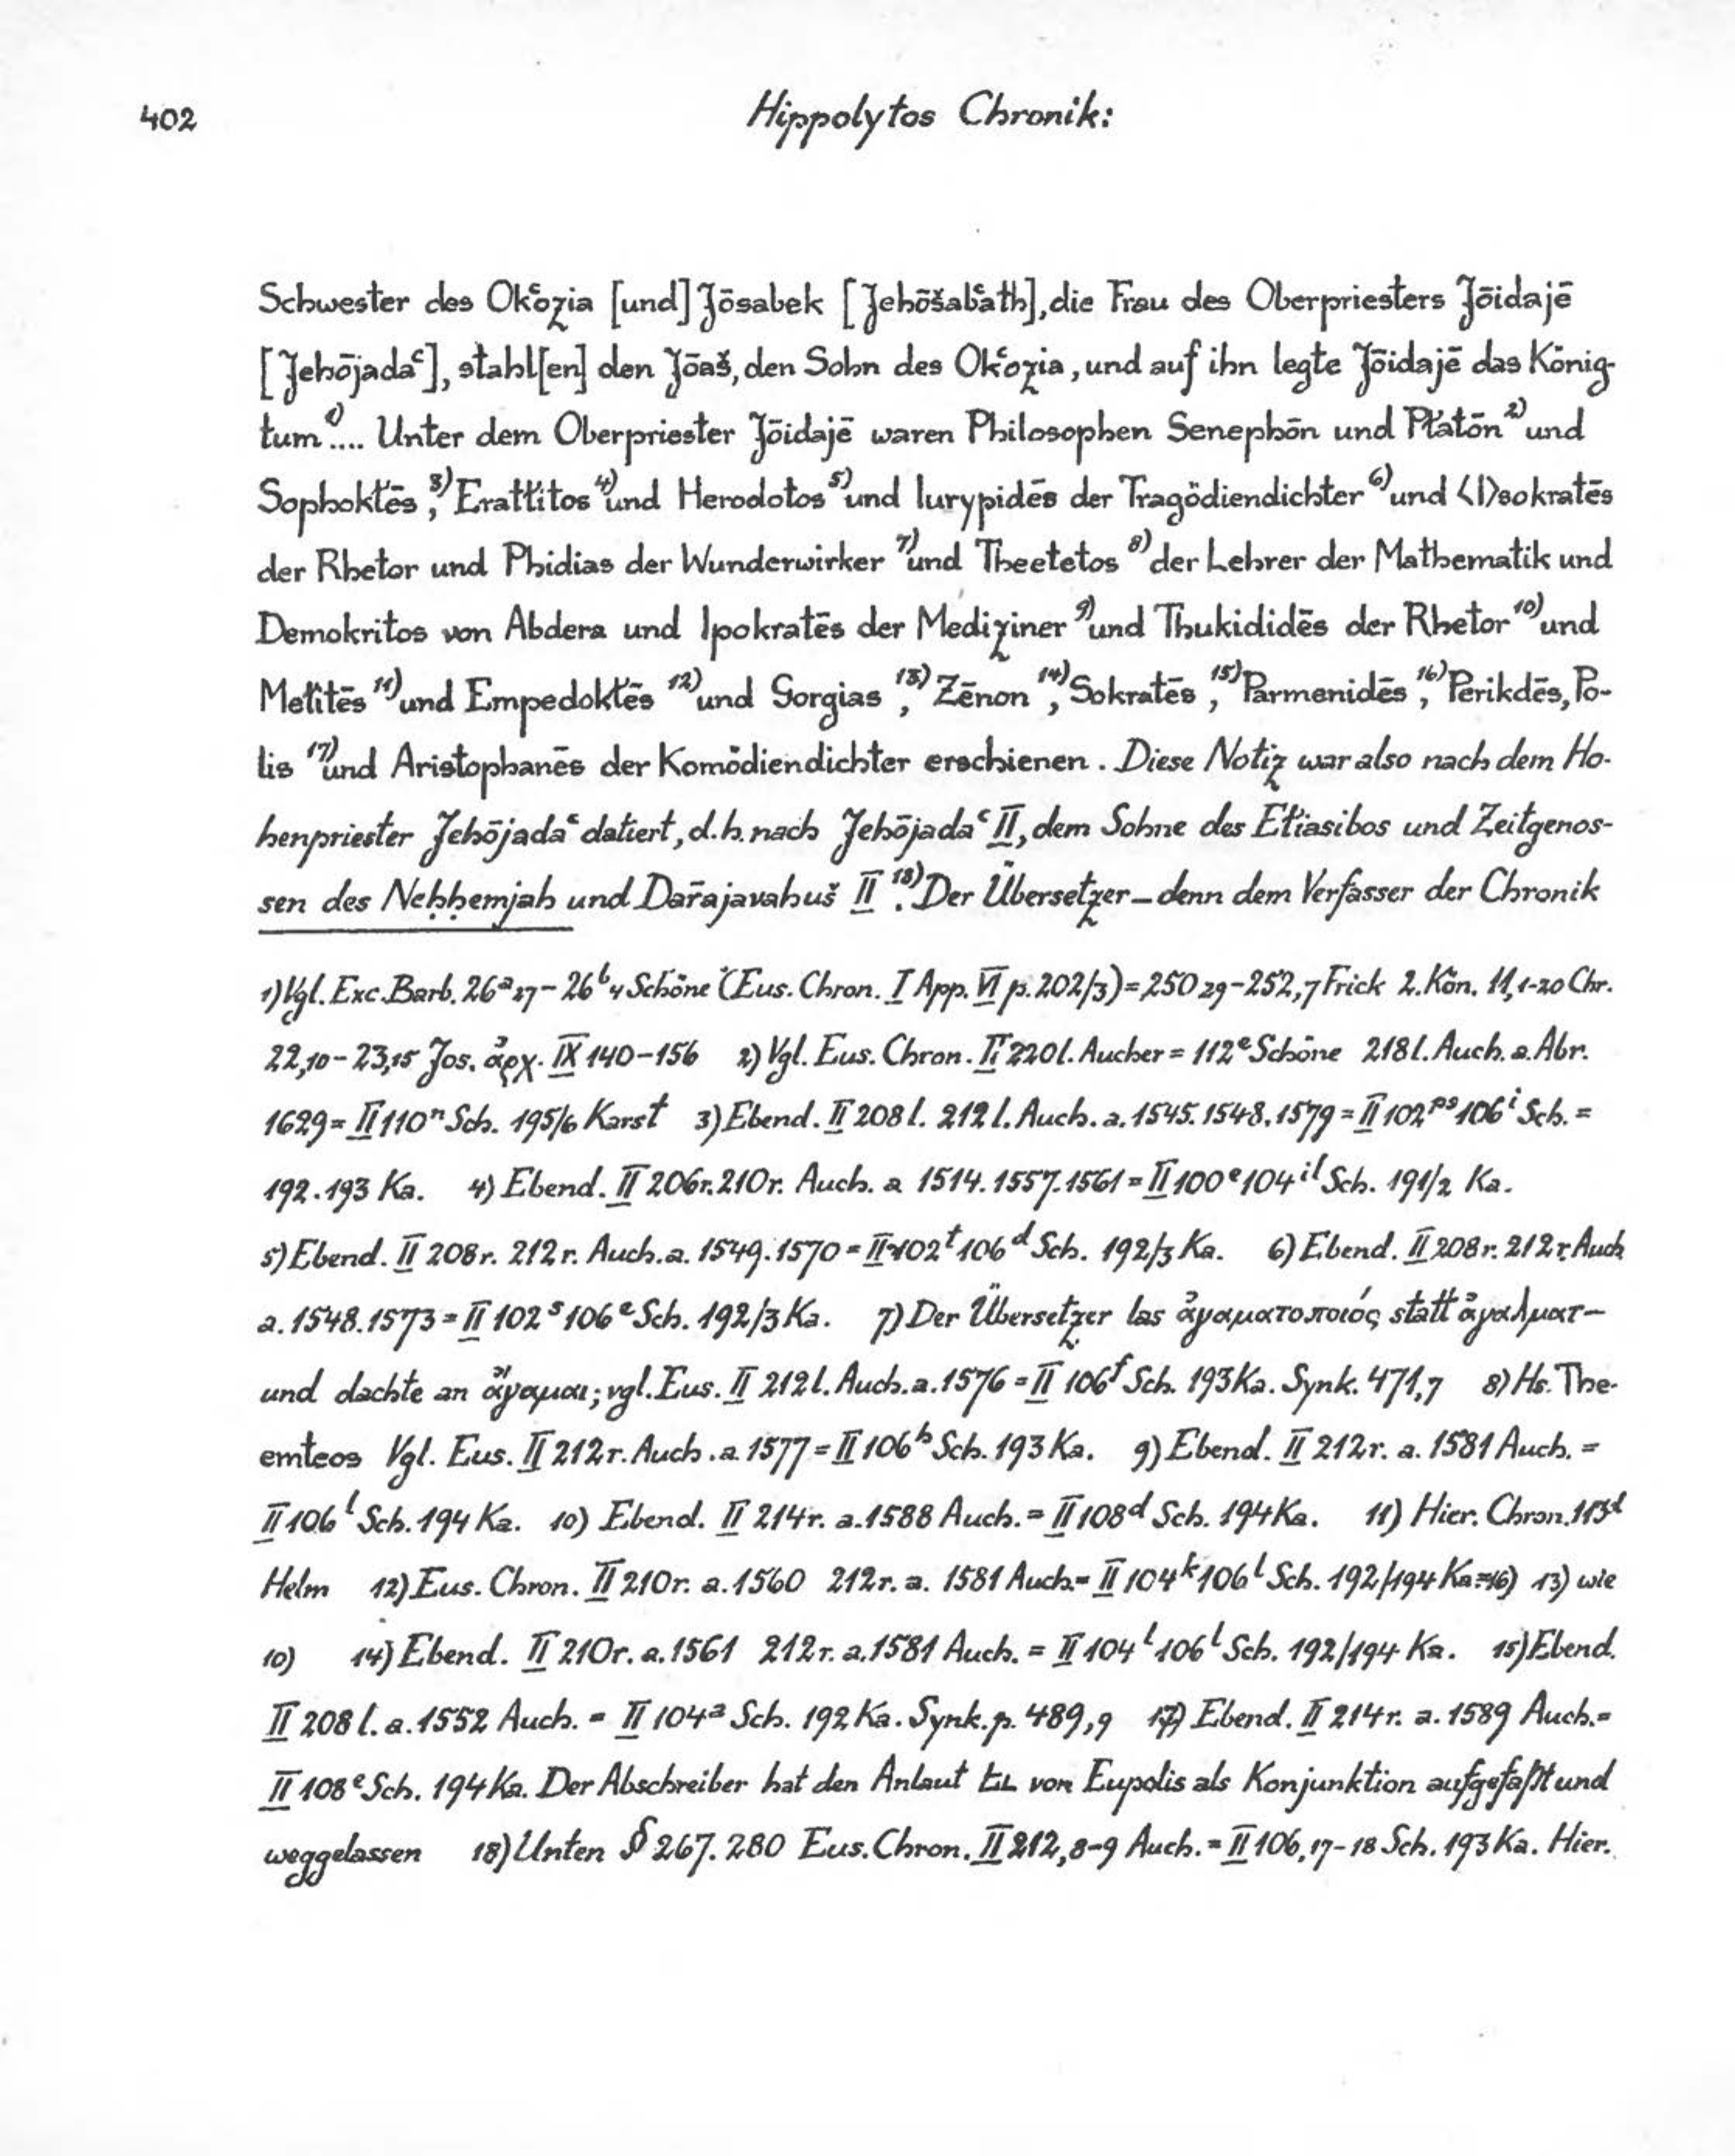 402
Hippolytos Chronik:
Schwester des Okʿozia [und] Jōsabek [Jehōšabʿath], die Frau des Oberpriesters Jōidajē
[Jehōjadaʿ], stahl[en] den Jōaš, den Sohn des Okʿozia, und auf ihn legte Jōidajē das König-
tum¹⁾.... Unter dem Oberpriester Jōidajē waren Philosophen Senephōn und Płatōn²⁾ und
Sophokłēs,³⁾ Erakłitos⁴⁾ und Herodotos⁵⁾ und Iurypidēs der Tragödiendichter⁶⁾ und <I>sokratēs
der Rhetor und Phidias der Wunderwirker⁷⁾ und Theetetos⁸⁾ der Lehrer der Mathematik und
Demokritos von Abdera und Ipokratēs der Mediziner⁹⁾ und Thukididēs der Rhetor¹⁰⁾ und
Mełitēs¹¹⁾ und Empedokłēs¹²⁾ und Gorgias,¹³⁾ Zēnon,¹⁴⁾ Sokratēs,¹⁵⁾ Parmenidēs,¹⁶⁾ Perikdēs, Po-
lis¹⁷⁾ und Aristophanēs der Komödiendichter erschienen. Diese Notiz war also nach dem Ho-
henpriester Jehōjadaʿ datiert, d.h. nach Jehōjadaʿ II, dem Sohne des Ełiasibos und Zeitgenos-
sen des Neḥḥemjah und Dārajavahuš II.¹⁸⁾ Der Übersetzer – denn dem Verfasser der Chronik
1) Vgl. Exc. Barb. 26ᵃ27-26ᵇ4 Schöne (Eus. Chron. I App. VI p. 202/3) = 250 29-252,7 Frick 2. Kön. 11,1-20 Chr.
22,10-23,15 Jos. ἀρχ. IX 140-156 2) Vgl. Eus. Chron. II 220 l. Aucher = 112ᵉ Schöne 218 l. Auch. a. Abr.
1629 = II 110ⁿ Sch. 195/6 Karst 3) Ebend. II 208 l. 212 l. Auch. a. 1545. 1548. 1579 = II 102ᵖˢ 106ⁱ Sch. =
192. 193 Ka. 4) Ebend. II 206r. 210r. Auch. a 1514. 1557. 1561 = II 100ᵉ 104ⁱˡ Sch. 191/2 Ka.
5) Ebend. II 208r. 212r. Auch. a. 1549. 1570 = II 102ᵗ 106ᵈ Sch. 192/3 Ka. 6) Ebend. II 208r. 212r. Auch
a. 1548. 1573 = II 102ˢ 106ᵉ Sch. 192/3 Ka. 7) Der Übersetzer las ἀγαματοποιός statt ἀγαλματ-
und dachte an ἄγαμαι; vgl. Eus. II 212 l. Auch. a. 1576 = II 106ᶠ Sch. 193 Ka. Synk. 471,7 8) Hs. The-
emteos Vgl. Eus. II 212r. Auch. a. 1577 = II 106ʰ Sch. 193 Ka. 9) Ebend. II 212r. a. 1581 Auch. =
II 106ˡ Sch. 194 Ka. 10) Ebend. II 214r. a. 1588 Auch. = II 108ᵈ Sch. 194 Ka. 11) Hier. Chron.
Helm 12) Eus. Chron. II 210r. a. 1560 212r. a. 1581 Auch. = II 104ᵏ 106ˡ Sch. 192/194 Ka = 16) 13) wie
10) 14) Ebend. II 210r. a. 1561 212r. a. 1581 Auch. = II 104ˡ 106ˡ Sch. 192/194 Ka. 15) Ebend.
II 208 l. a. 1552 Auch. = II 104ᵃ Sch. 192 Ka. Synk. p. 489,9 17) Ebend. II 214r. a. 1589 Auch. =
II 108ᵉ Sch. 194 Ka. Der Abschreiber hat den Anlaut von Eupolis als Konjunktion aufgefaßt und
weggelassen 18) Unten § 267. 280 Eus. Chron. II 212,8-9 Auch. = II 106,17-18 Sch. 193 Ka. Hier.